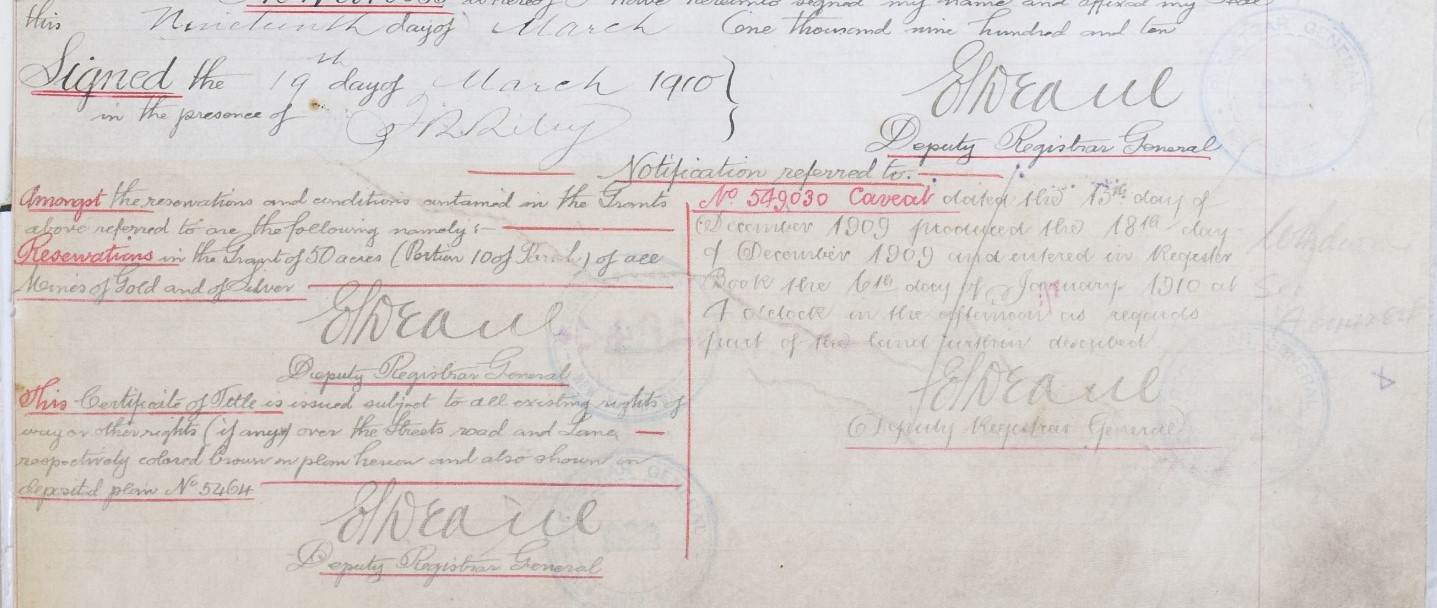 In witness whereof I have hereunto signed my name and affixed my Seal
this Nineteenth day of March One thousand nine hundred and ten
Signed the 19th day of March 1910
in the presence of
Deputy Registrar General
Notification referred to.
Amongst the reservations and conditions contained in the Grants
above referred to are the following namely:-
Reservations in the Grant of 50 acres (Portion 10 of Parish) of all
Mines of Gold and of Silver
Deputy Registrar General
This Certificate of Title is issued subject to all existing rights of
way or other rights (if any) over the Streets road and Lane
respectively colored brown on plan hereon and also shown in
deposited plan No 5464
Deputy Registrar General
No 549030 Caveat dated the 15th day of
December 1909 produced the 18th day
of December 1909 and entered in Register
Book the 6th day of January 1910 at
o'clock in the afternoon as regards
part of the land further described
Deputy Registrar General
REGISTRAR GENERAL